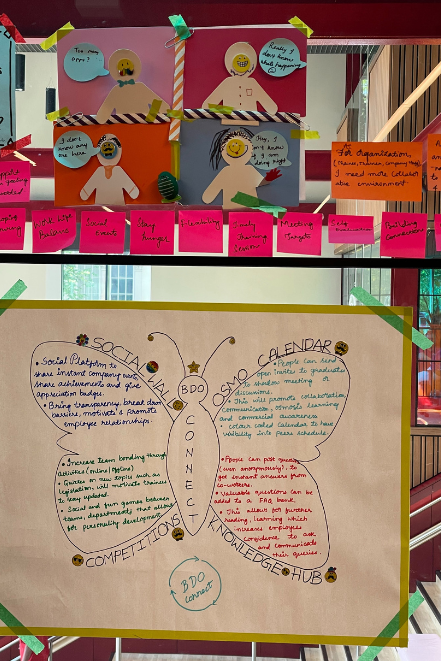 Too many
apps?
Really I
don't know
what's happening
I don't
know any
one here.
Hey, I
don't know
if I am
doing right
For organization,
I need more collabor
ative environment.
Social
events
Stay
hunger
Networking
Early
Training
Session
Meeting
Targets
Building
SOCIAL WALL
• Social Platform to
share instant company
share achievements and give
appreciation badges.
• Bring transparency, break down
barriers, motivate & promote
employee relationships.
BDO
CONNECT
OSMO CALENDAR
• People can send
open invites to graduates
to shadow meeting or
discussions.
• This will promote collaboration,
communication, osmosis learning
and commercial awareness
• colour coded Calendar to have
visibility into peers schedule.
• Increase team bonding through
activities (online/offline)
• Quizzes on new topics such as
legislation, will motivate trainees
to stay updated.
• Social and fun games between
teams, departments that allow
for personality development.
COMPETITIONS
• People can post queries
(even anonymously), to
get instant answers from
co-workers.
• Valuable questions can be
added to a FAQ bank.
• This allows for further
reading, learning which
increases employee
confidence to ask
and communicate
their queries.
KNOWLEDGE HUB
BDO
connect